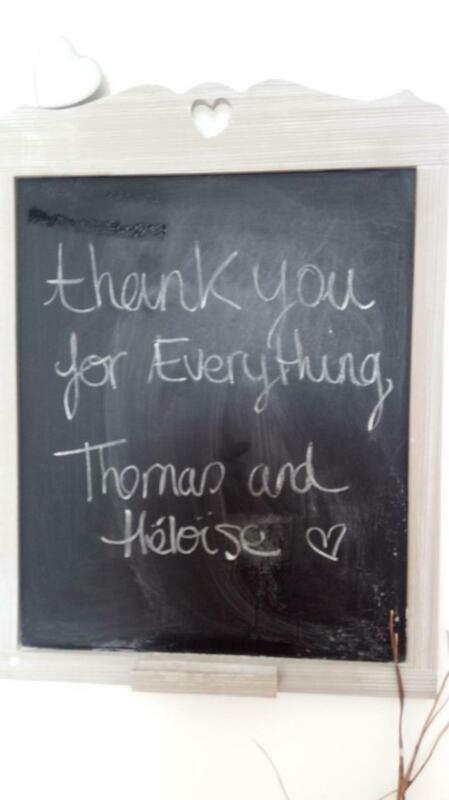 thank you
for Everything,
Thomas and
Héloïse ♡